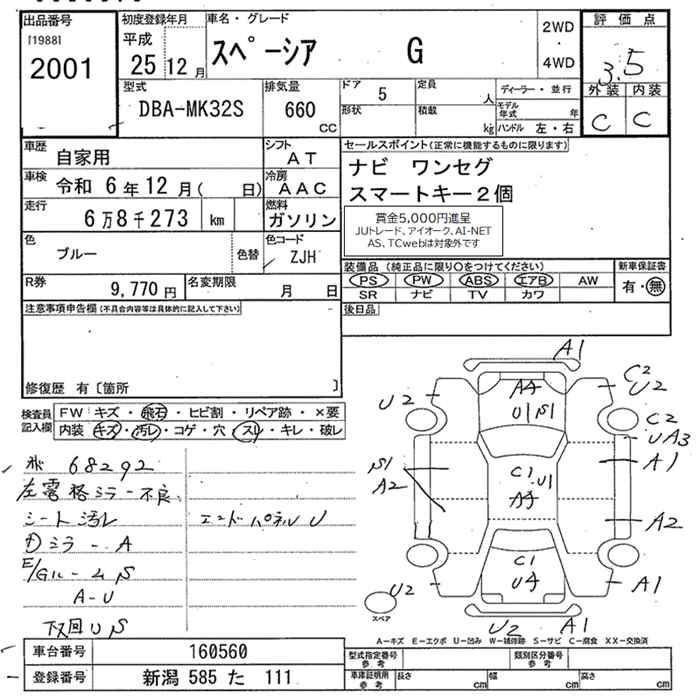 出品番号
[1988]
2001
初度登録年月
平成
25 12月
車名・グレード
スペーシア G
2WD
・
4WD
評価点
3.5
外装 内装
C C
型式
DBA-MK32S
排気量
660
CC
ドア 5
形状
定員 人
積載 kg
ディーラー・並行
モデル年式 年
ハンドル 左・右
車歴
自家用
シフト
AT
車検 令和 6年12月( 日)
冷房
AAC
走行
6万8千273 km
燃料
ガソリン
色
ブルー
色替
色コード
ZJH
R券 9,770円
名変期限 月 日
セールスポイント(正常に機能するものに限ります)
ナビ ワンセグ
スマートキー2個
賞金5,000円進呈
JUトレード、アイオーク、AI-NET
AS、TCwebは対象外です
装備品(純正品に限り○をつけてください)
新車保証書
PS PW ABS エアB AW
SR ナビ TV カワ
有・無
後日品
注意事項申告欄(不具合内容等は具体的に記入して下さい)
修復歴 有〔箇所 〕
検査員
記入欄
FW:キズ・飛石・ヒビ割・リペア跡・×要
内装:キズ・汚レ・コゲ・穴・スリ・キレ・破レ
68292
左電格ミラー不良
シート汚レ
ミラー A
エンドパネル U
E/Gルーム S
A-U
下回り S
A1
AA
U1 S1
C2
U2
U2
C2
UA3
A1
S1
A2
C1
U1
AA
A2
C1
UA
A1
U2
スペア
U2 A1
A-キズ E-エクボ U-凹み W-補修跡 S-サビ C-腐食 XX-交換済
車台番号 160560
登録番号 新潟 585 た 111
型式指定番号
参考
類別区分番号
参考
車庫証明用
参考
長さ cm
幅 cm
高さ cm